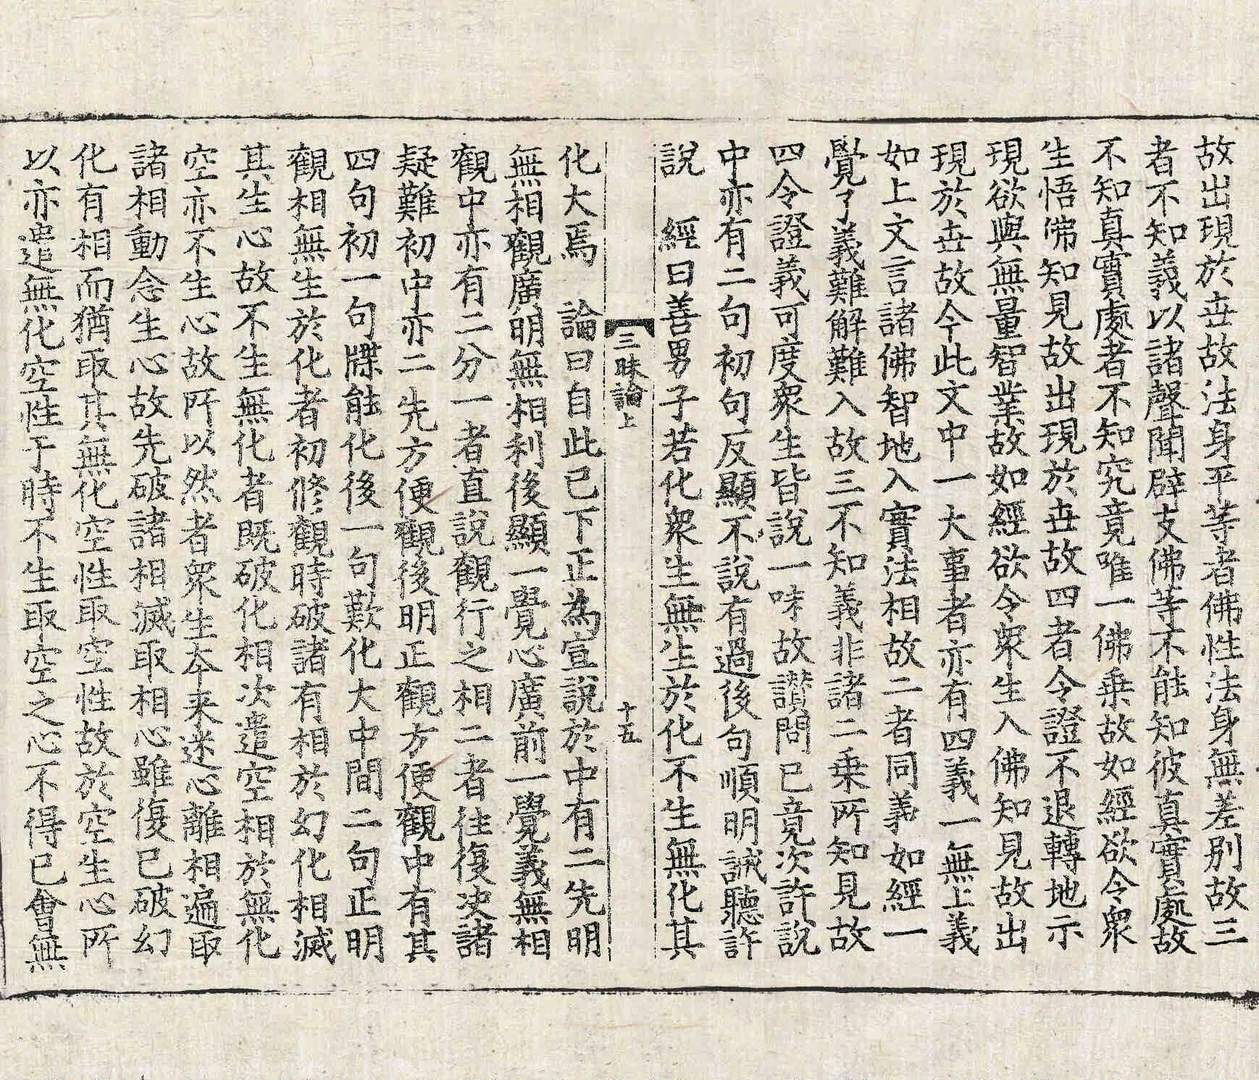 故出現於世故法身平等者佛性法身無差別故三
者不知義以諸聲聞辟支佛等不能知彼真實處故
不知真實處者不知究竟唯一佛乗故如經欲令衆
生悟佛知見故出現於世故四者令證不退轉地示
現欲與無量智業故如經欲令衆生入佛知見故出
現於世故今此文中一大事者亦有四義一無上義
如上文言諸佛智地入實法相故二者同義如經一
覺了義難解難入故三不知義非諸二乗所知見故
四令證義可度衆生皆說一味故讃問已竟次許說
中亦有二句初句反顯不說有過後句順明誡聽許
說　經曰善男子若化衆生無生於化不生無化其
三昧論上　十五
化大焉　論曰自此已下正為宣說於中有二先明
無相觀廣明無相利後顯一覺心廣前一覺義無相
觀中亦有二分一者直說觀行之相二者往復决諸
疑難初中亦二先方便觀後明正觀方便觀中有其
四句初一句牒能化後一句歎化大中間二句正明
觀相無生於化者初修觀時破諸有相於幻化相滅
其生心故不生無化者既破化相次遣空相於無化
空亦不生心故所以然者衆生夲来迷心離相遍取
諸相動念生心故先破諸相滅取相心雖復已破幻
化有相而猶取其無化空性取空性故於空生心所
以亦遣無化空性于時不生取空之心不得已會無